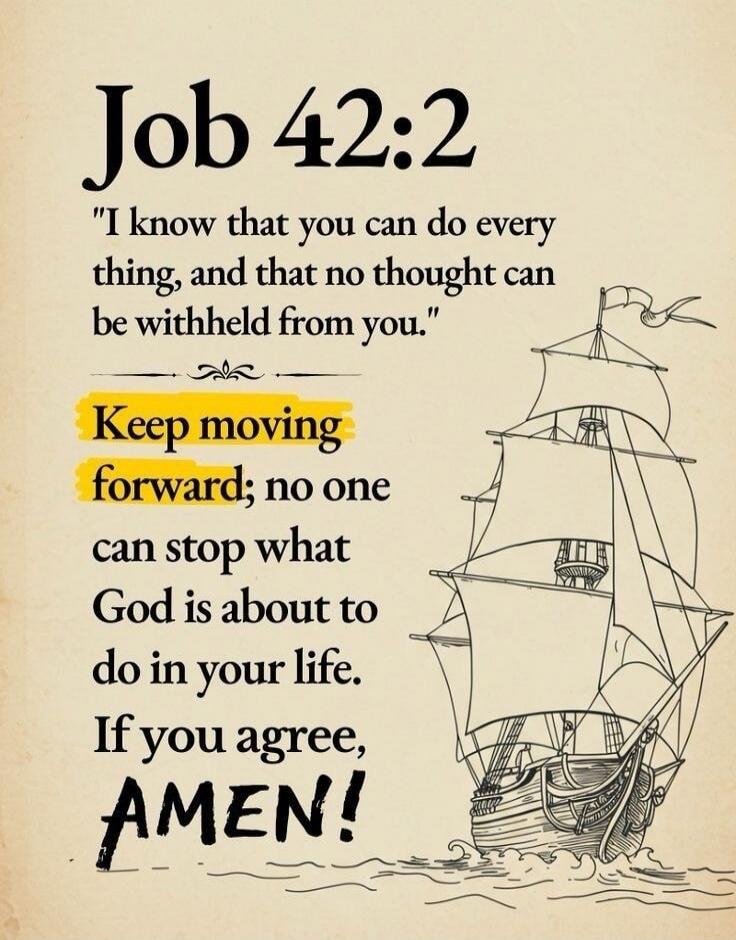 Job 42:2
"I know that you can do every
thing, and that no thought can
be withheld from you."
Keep moving
forward; no one
can stop what
God is about to
do in your life.
If you agree,
AMEN!